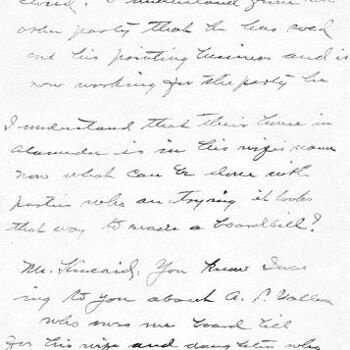 closed. I understand from an
other party that he has sold
out his printing business and is
now working for the party he
I understand that their house in
Alameda is in his wifes name
now what can be done with
parties who are trying it looks
that way to evade a boardbill?
Mr. Kincaid, You know I was
ing to you about A. P.
who owes me board bill
for his wife and daughter who